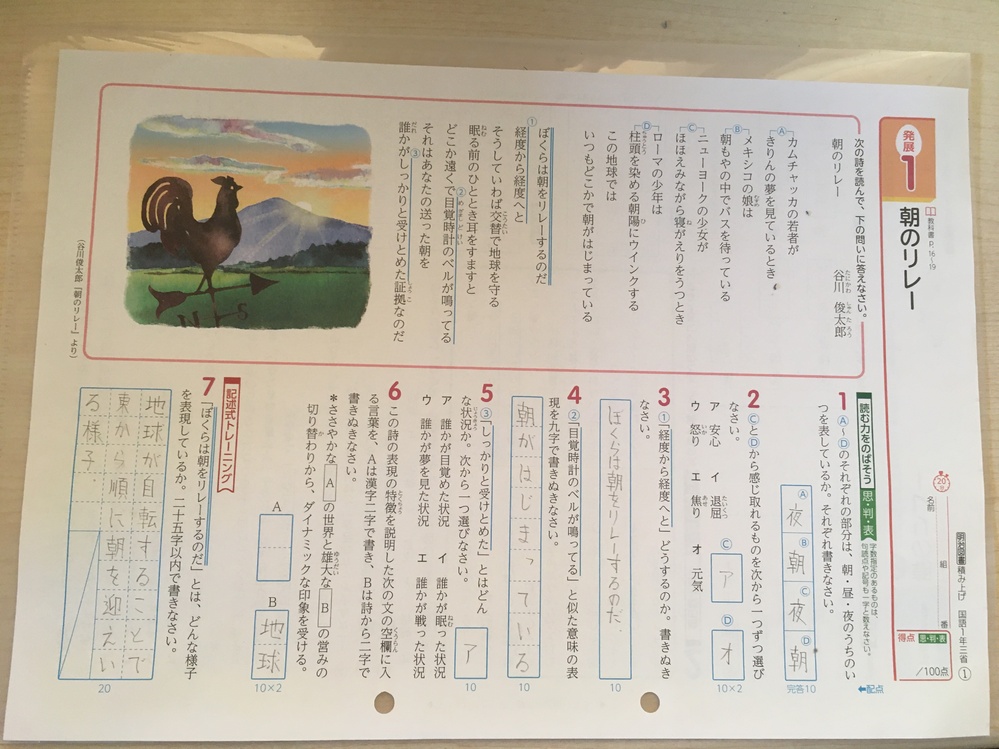 発展
1
朝のリレー
教科書 P.16〜19
明治図書 積み上げ 国語1年三省 ①
20分
組 番
名前
得点 思・判・表
/100点
次の詩を読んで、下の問いに答えなさい。
朝のリレー
谷川 俊太郎
Ⓐカムチャッカの若者が
きりんの夢を見ているとき
Ⓑメキシコの娘は
朝もやの中でバスを待っている
Ⓒニューヨークの少女が
ほほえみながら寝がえりをうつとき
Ⓓローマの少年は
柱頭を染める朝陽にウインクする
この地球では
いつもどこかで朝がはじまっている
①ぼくらは朝をリレーするのだ
経度から経度へと
そうしていわば交替で地球を守る
眠る前のひととき耳をすますと
どこか遠くで②目覚時計のベルが鳴ってる
それはあなたの送った朝を
誰かが③しっかりと受けとめた証拠なのだ
(谷川俊太郎「朝のリレー」より)
N S
読む力をのばそう 思・判・表
字数指定のあるものは、
句読点や記号も一字と数えなさい。
←配点
1 Ⓐ〜Ⓓのそれぞれの部分は、朝・昼・夜のうちのい
つを表しているか。それぞれ書きなさい。
Ⓐ 夜 Ⓑ 朝 Ⓒ 夜 Ⓓ 朝
完答10
2 ⒸとⒹから感じ取れるものを次から一つずつ選び
なさい。
ア 安心 イ 退屈
ウ 怒り エ 焦り オ 元気
Ⓒ ア Ⓓ オ
10×2
3 ①「経度から経度へと」どうするのか。書きぬき
なさい。
ぼくらは朝をリレーするのだ.
10
4 ②「目覚時計のベルが鳴ってる」と似た意味の表
現を九字で書きぬきなさい。
朝がはじまっている
10
5 ③「しっかりと受けとめた」とはどん
な状況か。次から一つ選びなさい。
ア 誰かが目覚めた状況 イ 誰かが眠った状況
ウ 誰かが夢を見た状況 エ 誰かが戦った状況
ア
10
6 この詩の表現の特徴を説明した次の文の空欄に入
る言葉を、Aは漢字二字で書き、Bは詩から二字で
書きぬきなさい。
*ささやかな A の世界と雄大な B の営みの
切り替わりから、ダイナミックな印象を受ける。
A
B 地球
10×2
記述式トレーニング
7 「ぼくらは朝をリレーするのだ」とは、どんな様子
を表現しているか。二十五字以内で書きなさい。
地球が自転することで
東から順に朝を迎えい
る様子
20